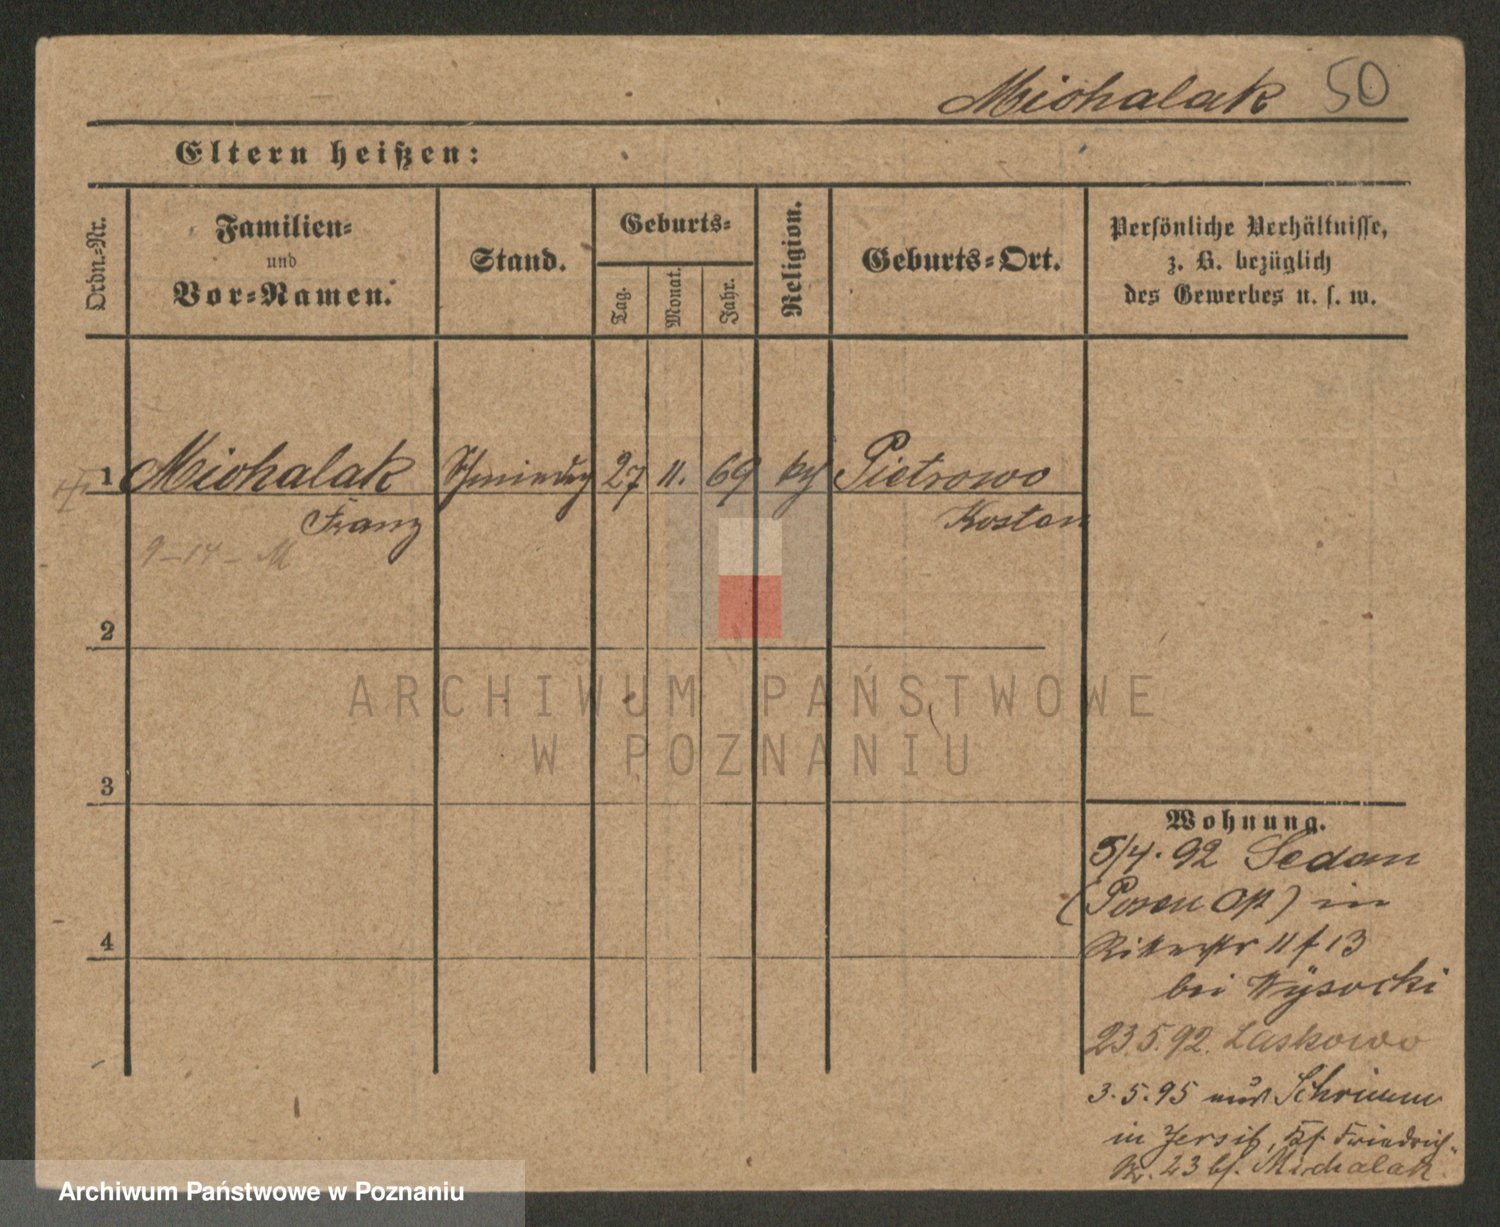 Michalak 50
Eltern heißen:
Ordn.-Nr.
Familien-
und
Vor-Namen.
Stand.
Geburts-
Tag.
Monat.
Jahr.
Religion.
Geburts-Ort.
Persönliche Verhältnisse,
z. B. bezüglich
des Gewerbes u. s. w.
1 Michalak 27 11. 69 Pietrowo
Franz Kosten
9-14-M
2
3
4
ARCHIWUM PAŃSTWOWE
W POZNANIU
Wohnung.
5/4. 92 Sedan
(Posen Ost) in
Ritterstr 11 f 13
bei Wysocki
23.5.92. Laskowo
3.5.95 aus Schrimm
in Jersitz, Friedrich-
23 bf. Michalak
Archiwum Państwowe w Poznaniu